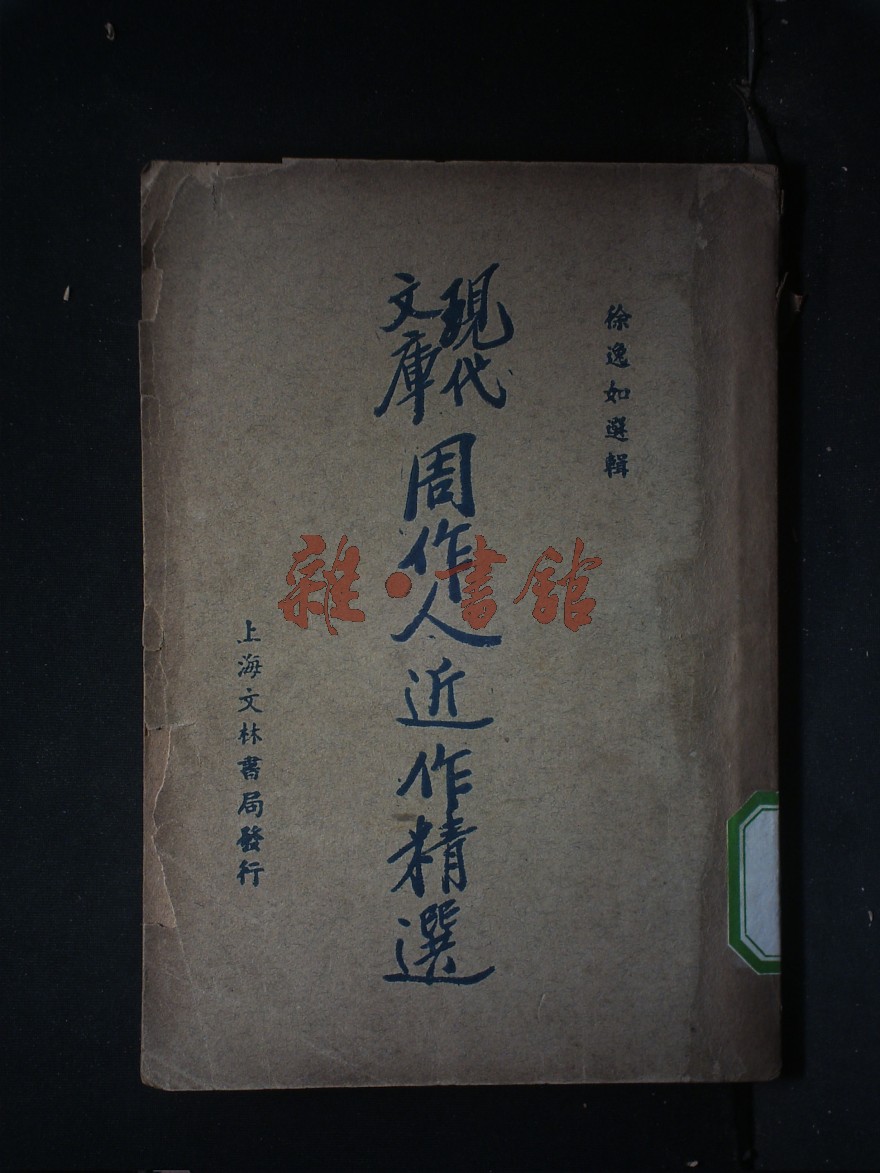 徐逸如選輯
現代
文庫
周作人近作精選
上海文林書局發行
雜·書館